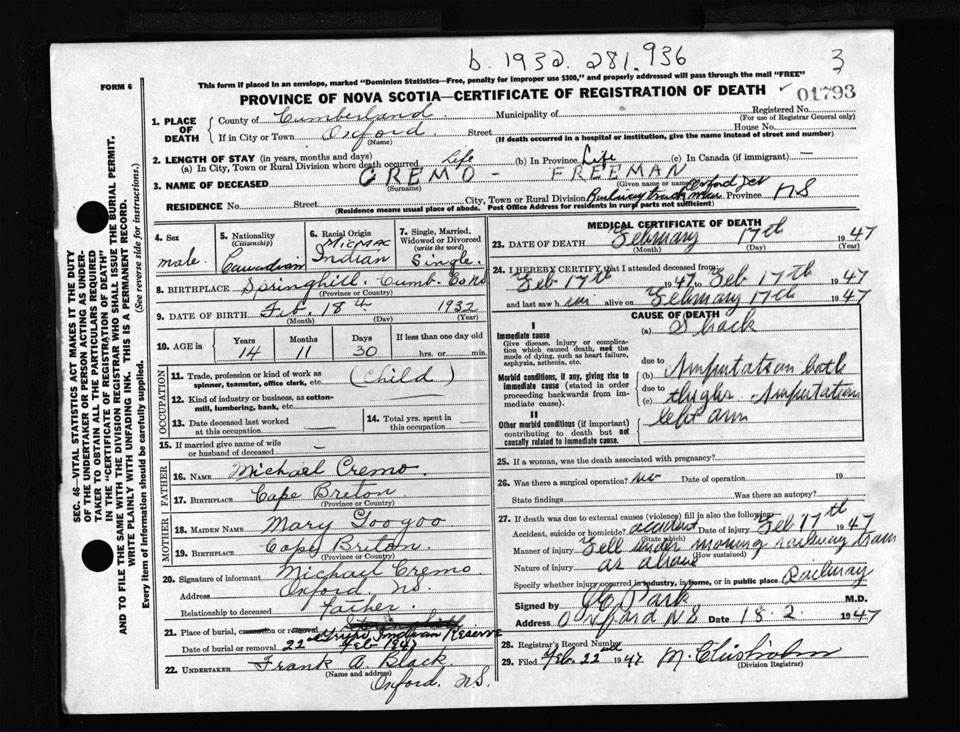 b. 1932. 281.936
3
FORM 6
This form if placed in an envelope, marked "Dominion Statistics—Free, penalty for improper use $300," and properly addressed will pass through the mail "FREE"
PROVINCE OF NOVA SCOTIA—CERTIFICATE OF REGISTRATION OF DEATH
01793
1. PLACE OF DEATH
County of Cumberland
Municipality of
Registered No.
(For use of Registrar General only)
If in City or Town Oxford Street House No.
(Name) (If death occurred in a hospital or institution, give the name instead of street and number)
2. LENGTH OF STAY (in years, months and days)
(a) In City, Town or Rural Division where death occurred Life (b) In Province Life (c) In Canada (if immigrant) —
3. NAME OF DECEASED CREMO - FREEMAN
(Surname) (Given or name)
RESIDENCE No. Street City, Town or Rural Division Railway track near Oxford Jct Province NS
(Residence means usual place of abode. Post Office Address for residents in rural parts not sufficient)
4. Sex
male
5. Nationality
(Citizenship)
Canadian
6. Racial Origin
Micmac
Indian
7. Single, Married, Widowed or Divorced
(write the word)
Single.
8. BIRTHPLACE Springhill. Cumb. Co NS
(Province or Country)
9. DATE OF BIRTH Feb. 18th 1932
(Month) (Day) (Year)
10. AGE in
Years Months Days If less than one day old
14 11 30 hrs. or min.
OCCUPATION
11. Trade, profession or kind of work as spinner, teamster, office clerk, etc. (Child)
12. Kind of industry or business, as cotton-mill, lumbering, bank, etc.
13. Date deceased last worked at this occupation
14. Total yrs. spent in this occupation
15. If married give name of wife or husband of deceased —
FATHER
16. NAME Michael Cremo.
17. BIRTHPLACE Cape Briton.
(Province or Country)
MOTHER
18. MAIDEN NAME Mary Googoo
19. BIRTHPLACE Cape Briton.
(Province or Country)
20. Signature of informant Michael Cremo
Address Oxford NS.
Relationship to deceased Father.
21. Place of burial, cremation or removal Indian Reserve
Date of burial or removal 22nd Feb 1947
22. UNDERTAKER Frank A. Black.
(Name and address)
Oxford. NS.
MEDICAL CERTIFICATE OF DEATH
23. DATE OF DEATH February 17th 1947
(Month) (Day) (Year)
24. I HEREBY CERTIFY that I attended deceased from:
Feb 17th 1947 to Feb 17th 1947
and last saw him alive on February 17th 1947
CAUSE OF DEATH
I
Immediate cause
Give disease, injury or complication which caused death, not the mode of dying, such as heart failure, asphyxia, asthenia, etc.
(a) Shock
due to
Morbid conditions, if any, giving rise to immediate cause (stated in order proceeding backwards from immediate cause).
(b) Amputation both
due to
(c) thighs Amputation
left arm
II
Other morbid conditions (if important) contributing to death but not causally related to immediate cause.
25. If a woman, was the death associated with pregnancy?
26. Was there surgical operation? no Date of operation 19
State findings Was there an autopsy?
27. If death was due to external causes (violence) fill in also the following:
Accident, suicide or homicide? accident Date of injury Feb 17th 1947
(State which)
Manner of injury Fell under moving railway train
(How sustained)
Nature of injury as above
Specify whether injury occurred in industry, in home, or in public place Railway
Signed by Park M.D.
Address Oxford NS Date 18.2. 1947
28. Registrar's Record Number
29. Filed Feb. 22nd 1947 M. Chisholm
(Division Registrar)
SEC. 46—VITAL STATISTICS ACT MAKES IT THE DUTY
OF THE UNDERTAKER OR PERSON ACTING AS UNDER-
TAKER TO OBTAIN ALL THE PARTICULARS REQUIRED
IN THE "CERTIFICATE OF REGISTRATION OF DEATH"
AND TO FILE THE SAME WITH THE DIVISION REGISTRAR WHO SHALL ISSUE THE BURIAL PERMIT.
WRITE PLAINLY WITH UNFADING INK. THIS IS A PERMANENT RECORD.
Every item of information should be carefully supplied. (See reverse side for instructions.)